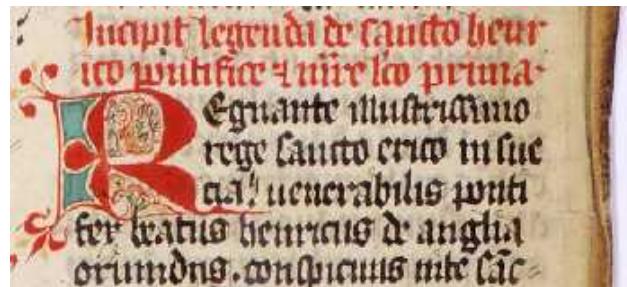 Incipit legenda de sancto henr
ico pontifice ⁊ mr̄e lc̄o prima
Regnante illustrissimo
rege sancto erico in sue
cia uenerabilis ponti
fex beatus henricus de anglia
oriundus. conspicuus uite sāc-